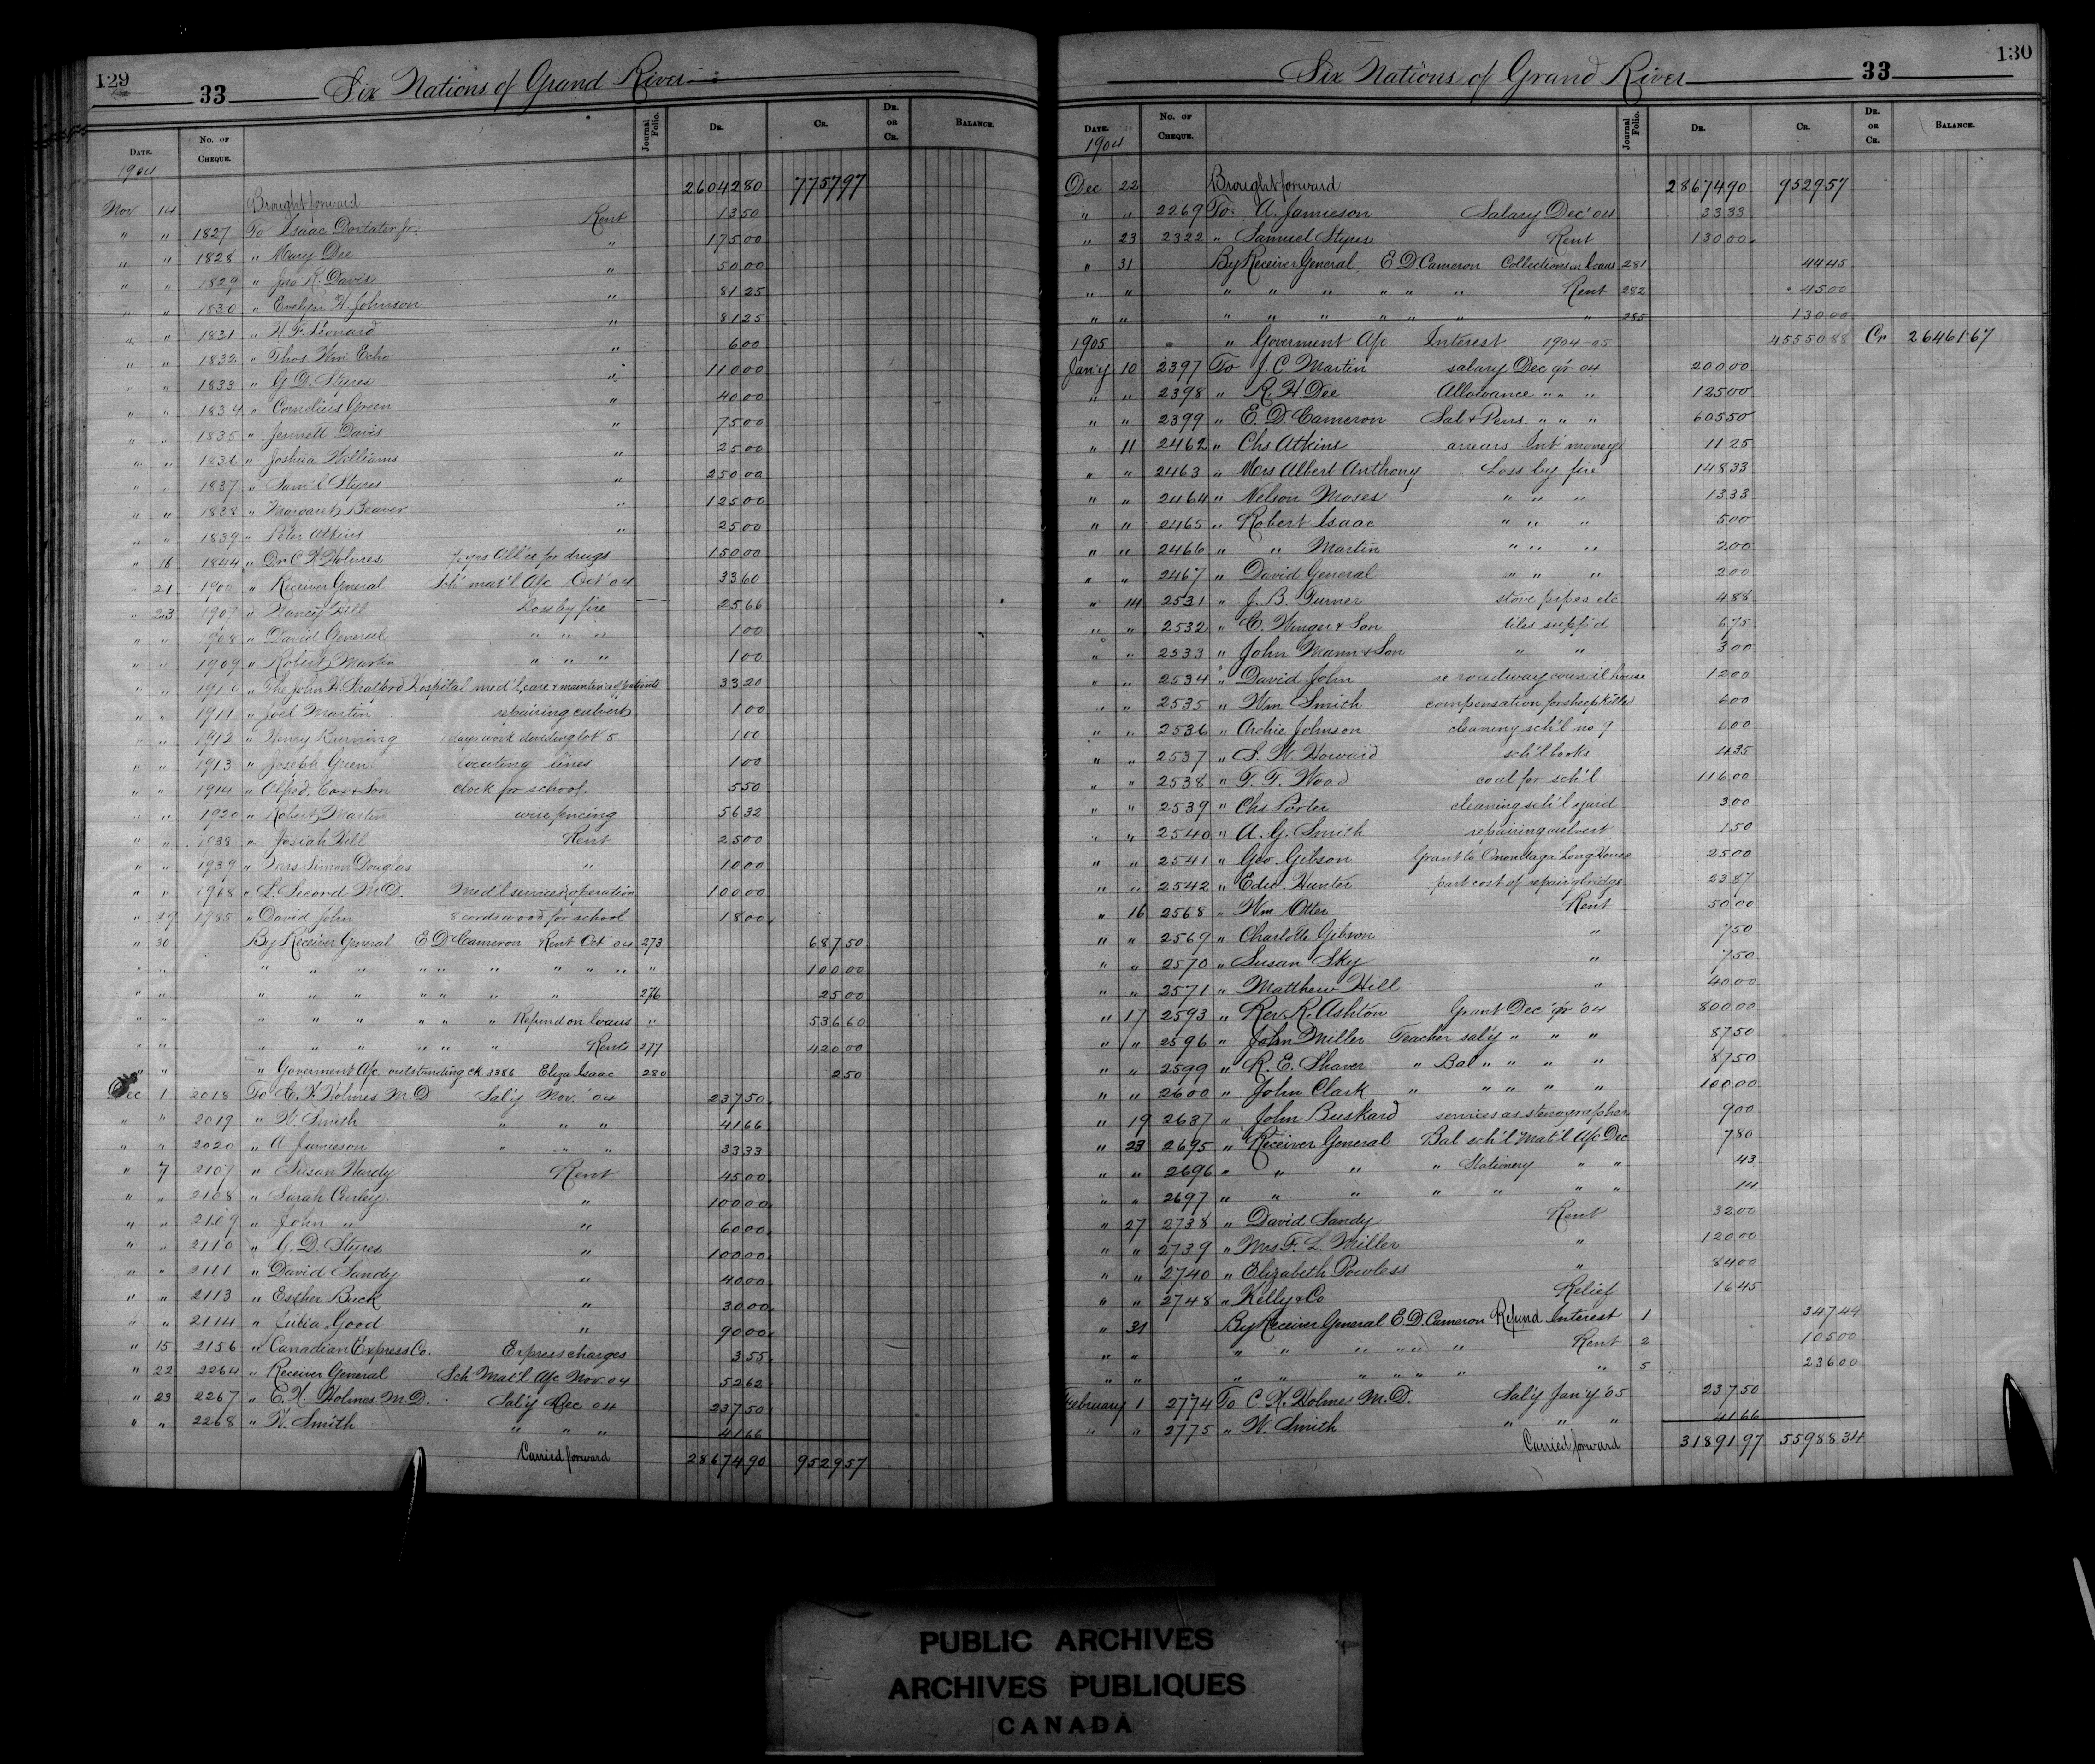 129
33 Six Nations of Grand River
Date. No. of Cheque. Journal Folio. Dr. Cr. Dr. or Cr. Balance.
1904
Brought forward 26042 80 7757 97
Nov 14 1827 To Isaac Doxtater jr. Rent 13 50
" " 1828 " Mary Dee " 175 00
" " 1829 " Jno R. Davis " 50 00
" " 1830 " Evelyn H. Johnson " 81 25
" " 1831 " H. F. Leonard " 81 25
" " 1832 " Thos Wm Echo " 6 00
" " 1833 " G. D. Styres " 110 00
" " 1834 " Cornelius Green " 40 00
" " 1835 " Jennett Davis " 75 00
" " 1836 " Joshua Williams " 25 00
" " 1837 " Sam'l Styres " 250 00
" " 1838 " Margaret Beaver " 125 00
" " 1839 " Peter Atkins " 25 00
" 16 1844 " Dr C K Holmes ½ yrs All'ce for drugs 150 00
" 21 1900 " Receiver General Sch' mat'l A/c Oct' 04 33 60
" 23 1907 " Nancy Hill Loss by fire 25 66
" " 1908 " David General " " " 1 00
" " 1909 " Robert Martin " " " 1 00
" " 1910 " The John H. Stratford Hospital med'l, care & maintenince of patients 33 20
" " 1911 " Joel Martin repairing culvert 1 00
" " 1912 " Henry Burning 1 days work deviding lot 5 1 00
" " 1913 " Joseph Green locating lines 1 00
" " 1914 " Alfred Cox & Son clock for school 5 50
" " 1920 " Robert Martin wire fencing 56 32
" " 1938 " Josiah Hill Rent 25 00
" " 1939 " Mrs Simon Douglas " 10 00
" " 1968 " L. Secord M.D. Med'l services & operation 100 00
" 29 1985 " David John 8 cords wood for school 18 00
" 30 By Receiver General E D Cameron Rent Oct' 04 273 687 50
" " " " " " " " " " " " 100 00
" " " " " " " " " 276 25 00
" " " " " " " " Refund on loans " 536 60
" " " " " " " " Rents 277 420 00
" " " Goverment A/c outstanding ck 3386 Eliza Isaac 280 2 50
Dec 1 2018 To C. K. Holmes M.D Sal'y Nov. '04 237 50
" " 2019 " W. Smith " " " 41 66
" " 2020 " A Jamieson " " " 33 33
" 7 2107 " Susan Hardy Rent 45 00
" " 2108 " Sarah Curley " 100 00
" " 2109 " John " " 60 00
" " 2110 " G. D. Styres " 100 00
" " 2111 " David Sandy " 40 00
" " 2113 " Esther Buck " 30 00
" " 2114 " Julia Good " 90 00
" 15 2156 " Canadian Express Co. Express charges 3 55
" 22 2264 " Receiver General Sch Mat'l A/c Nov. 04 52 62
" 23 2267 " C. K. Holmes M.D. Sal'y Dec 04 237 50
" " 2268 " W. Smith " " " 41 66
Carried forward 28674 90 9529 57
130
Six Nations of Grand River 33
Date. No. of Cheque. Journal Folio. Dr. Cr. Dr. or Cr. Balance.
1904
Dec 22 Brought forward 28674 90 9529 57
" " 2269 To A. Jamieson Salary Dec' 04 33 33
" 23 2322 " Samuel Styres Rent 130 00
" 31 By Receiver General, E D Cameron Collections on loans 281 44 45
" " " " " " " " Rent 282 45 00
" " " " " " " " " 285 130 00
1905 " Goverment A/c Interest 1904-05 45550 88 Cr 26461 67
Jan'y 10 2397 To J. C Martin salary Dec q'r 04 200 00
" " 2398 " R. H Dee Allowance " " " 125 00
" " 2399 " E. D. Cameron Sal & Pens. " " " 605 50
" 11 2462 " Chs Atkins arrears Int' moneys 11 25
" " 2463 " Mrs Albert Anthony Loss by fire 148 33
" " 2464 " Nelson Moses " " " 13 33
" " 2465 " Robert Isaac " " " 5 00
" " 2466 " " Martin " " " 2 00
" " 2467 " David General " " " 2 00
" 14 2531 " J. B. Turner stove pipes etc 4 88
" " 2532 " C. Wenger & Son tiles supp'd 6 75
" " 2533 " John Mann & Son " " 3 00
" " 2534 " David John re roadway council house 12 00
" " 2535 " Wm Smith compensation for sheep killed 6 00
" " 2536 " Archie Johnson cleaning sch'l no 9 6 00
" " 2537 " S. W. Howard sch'l books 4 35
" " 2538 " F. F. Wood coal for sch'l 116 00
" " 2539 " Chs Porter cleaning sch'l yard 3 00
" " 2540 " A. G. Smith repairing culvert 1 50
" " 2541 " Geo. Gibson Grant to Onondaga Long House 25 00
" " 2542 " Edw. Hunter part cost of repair'g bridge 23 87
" 16 2568 " Wm Otter Rent 50 00
" " 2569 " Charlotte Gibson " 7 50
" " 2570 " Susan Sky " 7 50
" " 2571 " Matthew Hill " 40 00
" 17 2593 " Rev. R. Ashton Grant Dec' q'r '04 800 00
" " 2596 " John Miller Teacher sal'y " " " 87 50
" " 2599 " R. E. Shaver " Bal " " " " 87 50
" " 2600 " John Clark " " " " " 100 00
" 19 2637 " John Buskard services as stenographer 9 00
" 23 2695 " Receiver General Bal sch'l Mat'l A/c Dec 7 80
" " 2696 " " " " Stationery " " 43
" " 2697 " " " " " " " 14
" 27 2738 " David Sandy Rent 32 00
" " 2739 " Mrs F. L. Miller " 120 00
" " 2740 " Elizabeth Powless " 84 00
" " 2748 " Kelly & Co Relief 16 45
" 31 By Receiver General E. D. Cameron Refund Interest 1 347 44
" " " " " " " " Rent 2 105 00
" " " " " " " " " 5 236 00
February 1 2774 To C. K. Holmes M.D. Sal'y Jan'y '05 237 50
" " 2775 " W. Smith " " " 41 66
Carried forward 31891 97 55988 34
PUBLIC ARCHIVES
ARCHIVES PUBLIQUES
CANADA